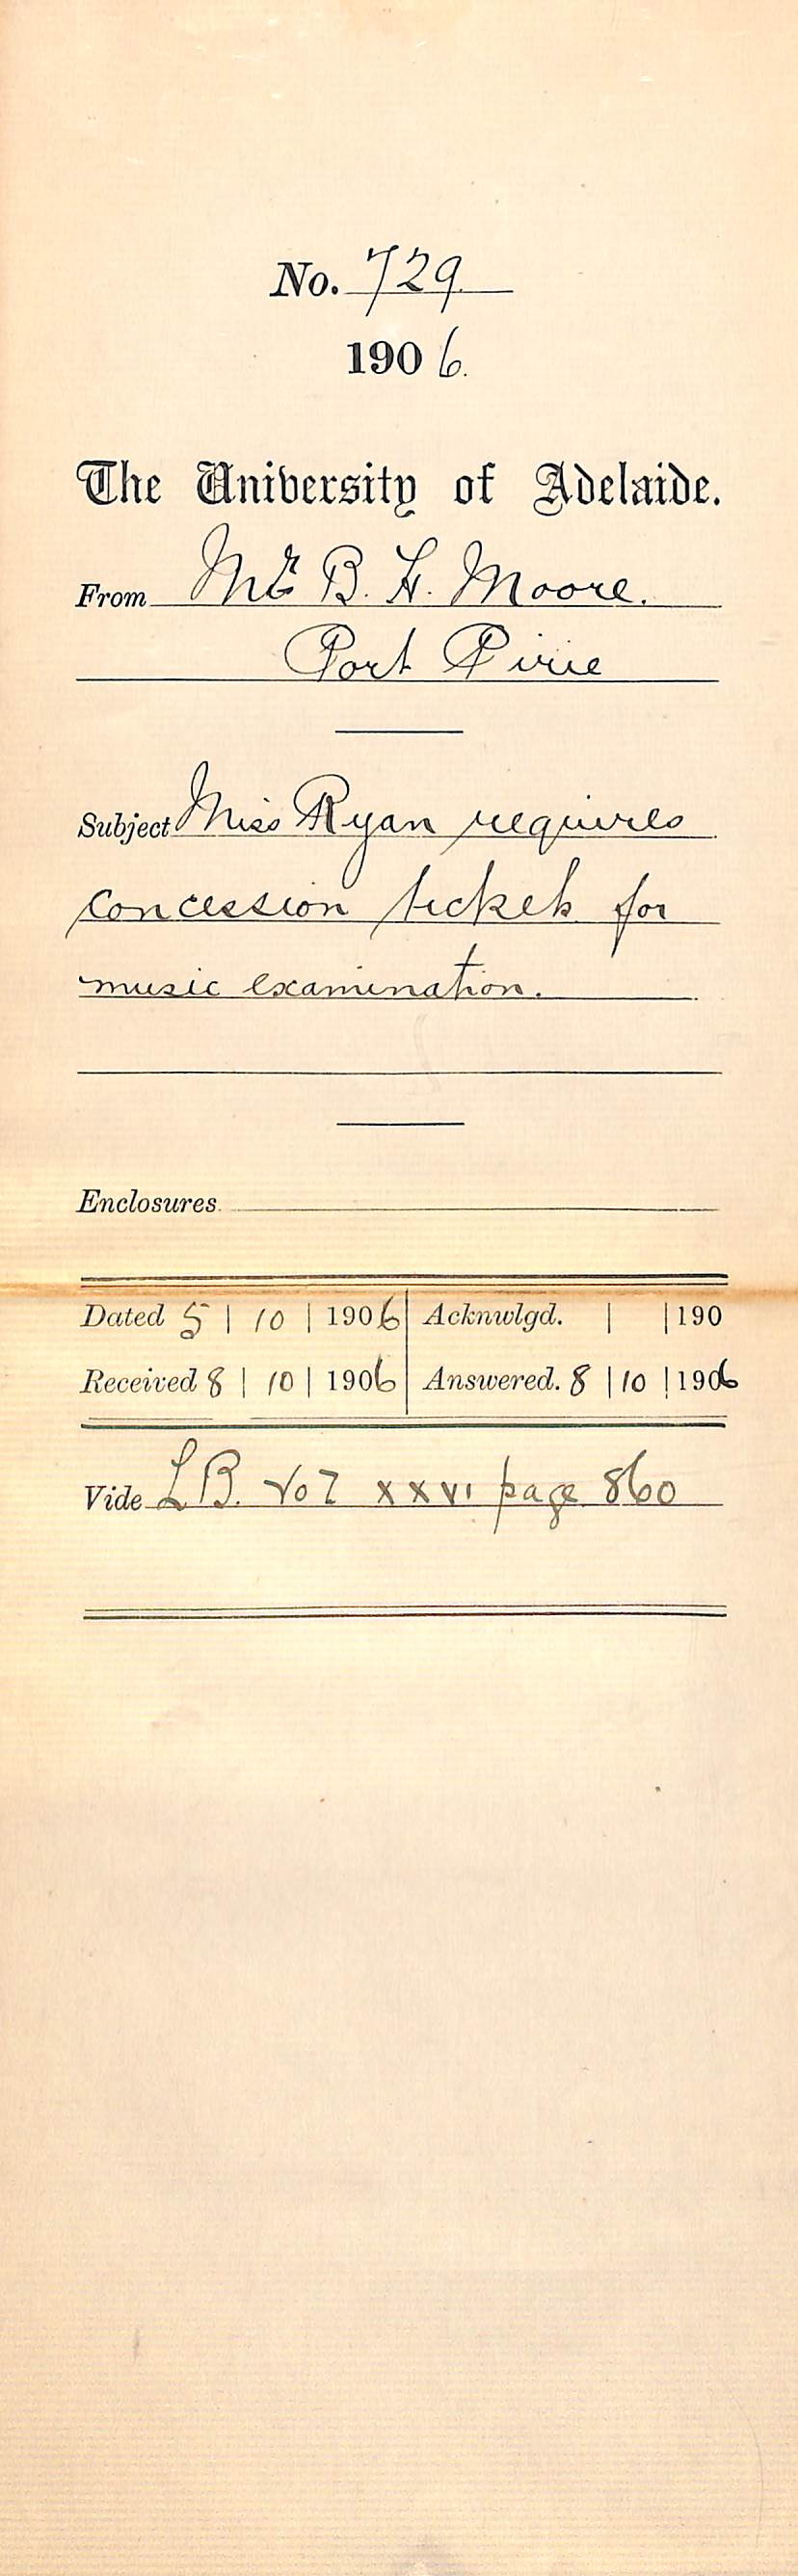 No. 729.
1906.
The University of Adelaide.
From Mr B. H. Moore.
Port Pirie
Subject Miss Ryan requires
concession tickets for
music examination.
Enclosures
Dated 5 | 10 | 1906 Acknwlgd. | | 190
Received 8 | 10 | 1906 Answered. 8 | 10 | 1906
Vide L B. Vol xxvi page 860